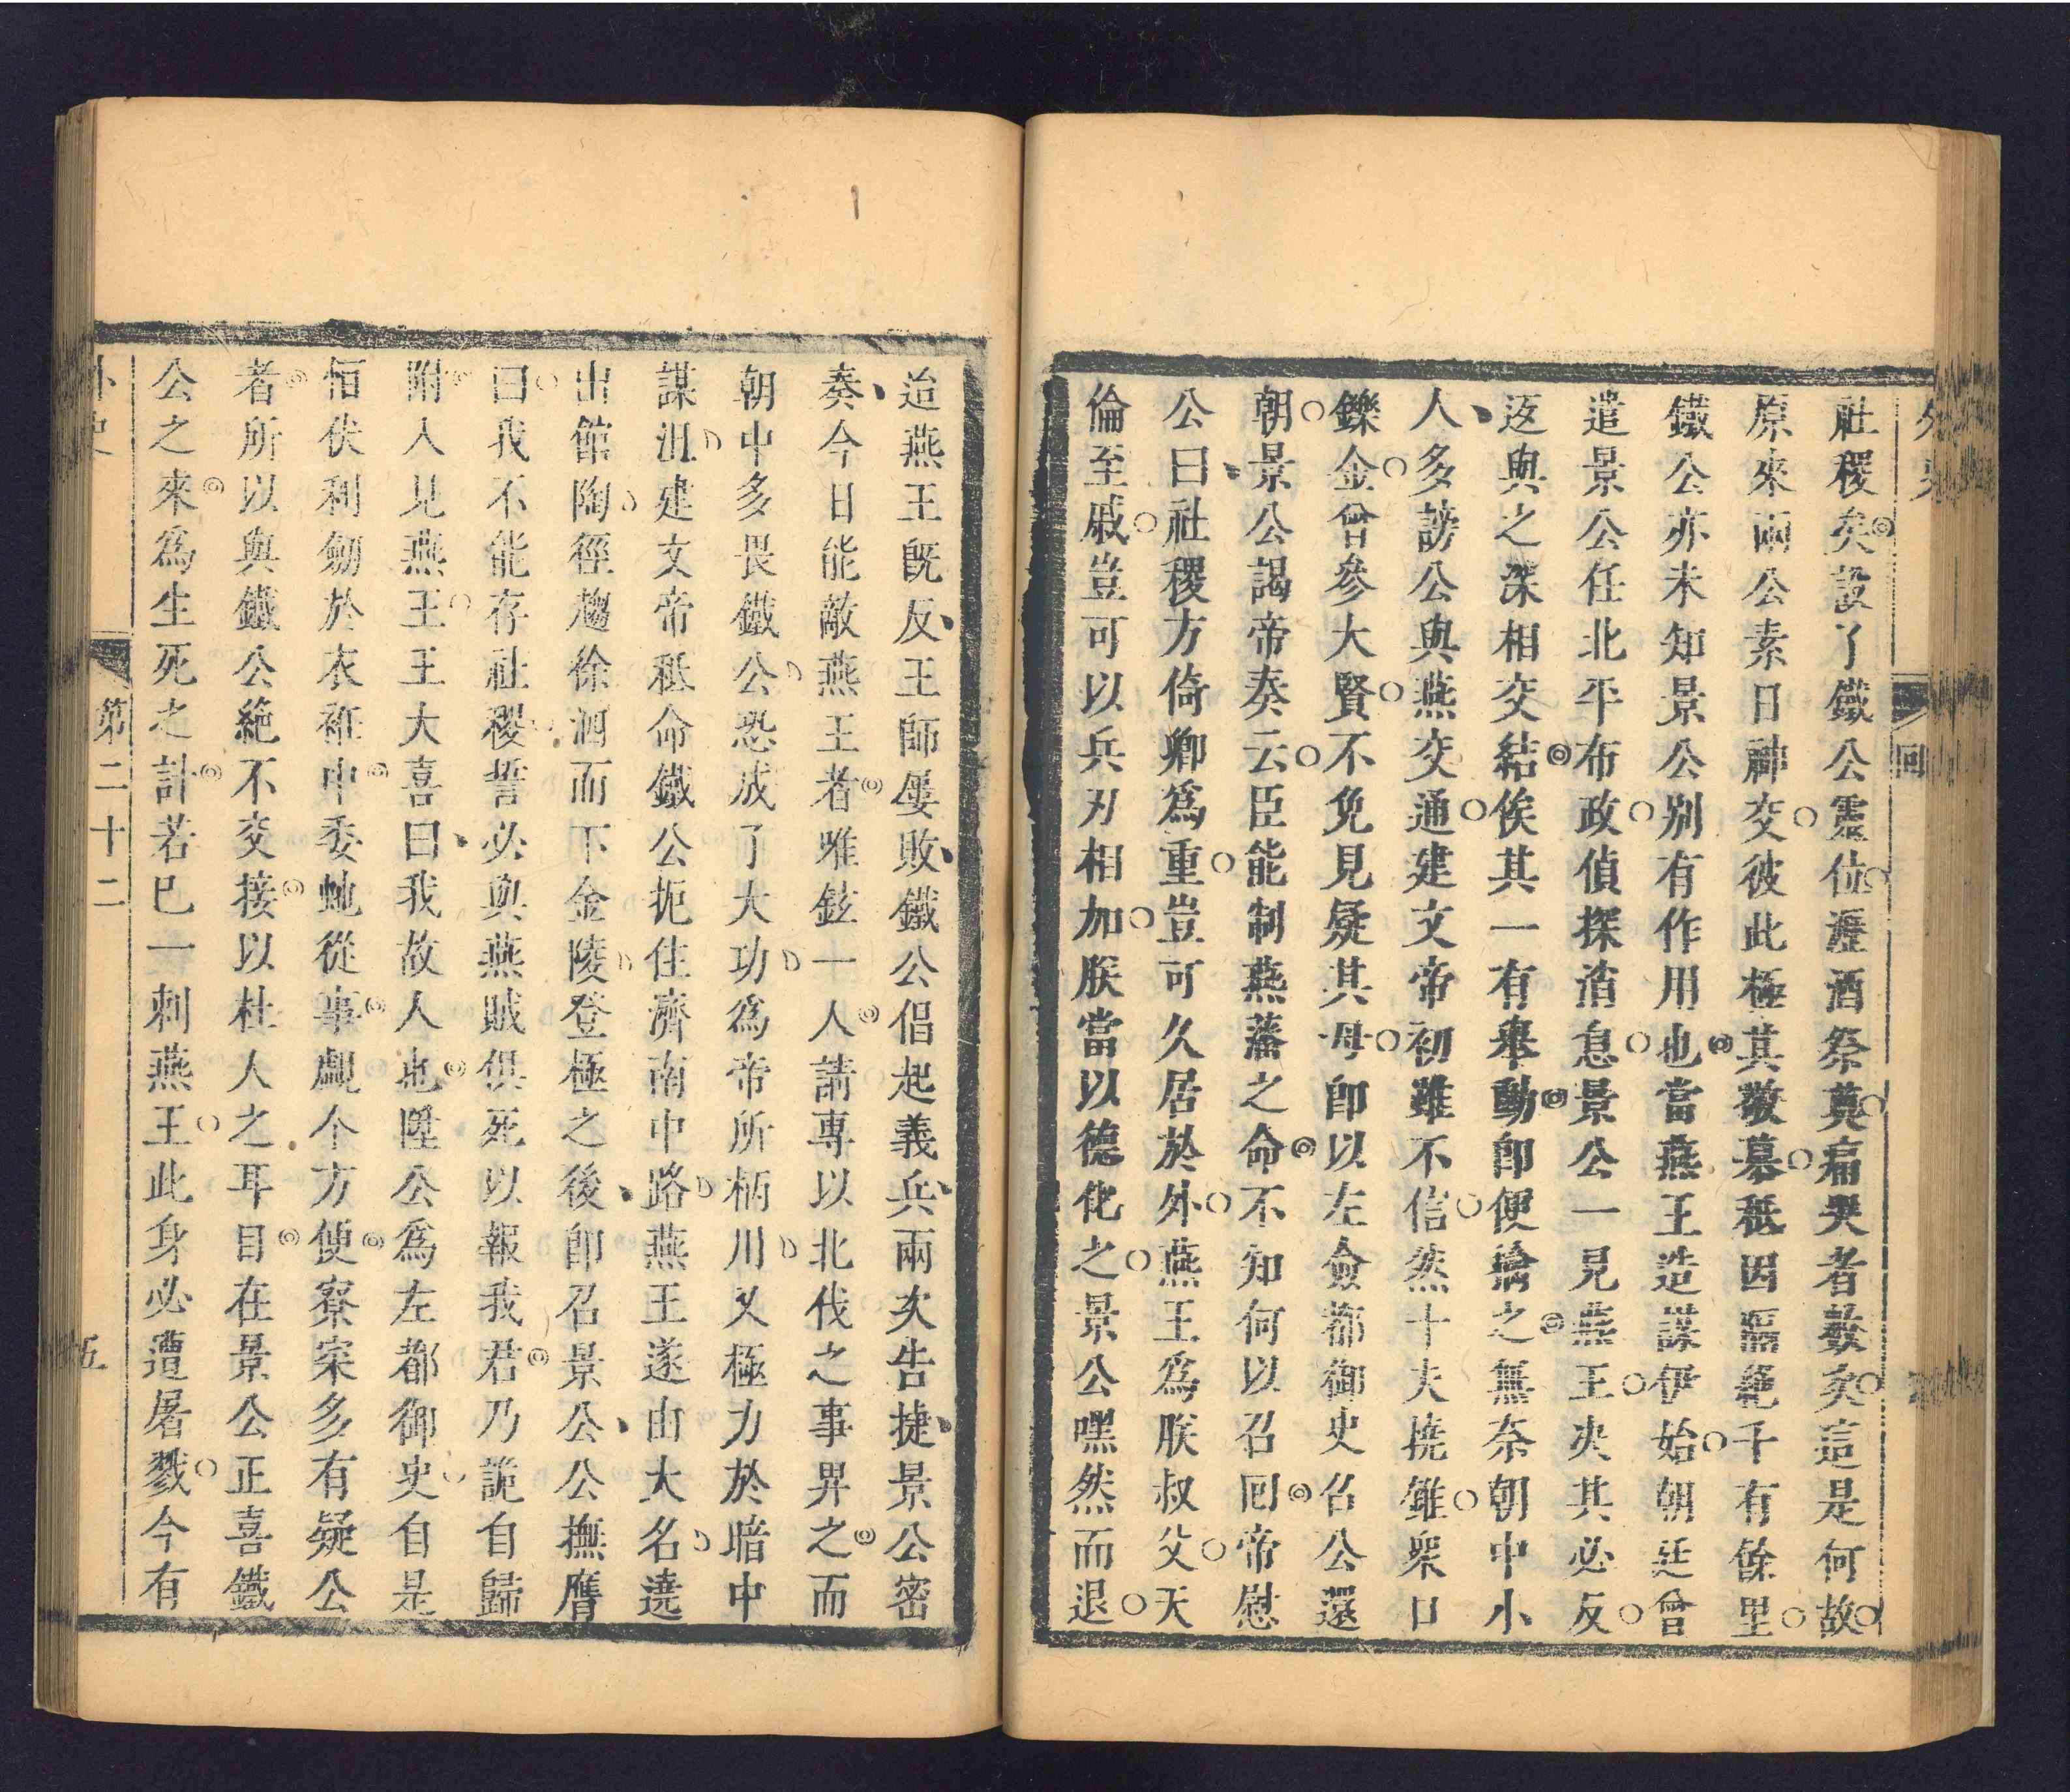 外史
回
社稷矣設了鐵公靈位瀝酒祭奠痛哭者數矣這是何故
原來兩公素日神交彼此極其敬慕秪因隔絶千有餘里
鐵公亦未知景公別有作用也當燕王造謀伊始朝廷曾
遣景公任北平布政偵探消息景公一見燕王决其必反
返與之深相交結俟其一有舉動即便擒之無奈朝中小
人多謗公與燕交通建文帝初雖不信然十夫撓錐衆口
鑠金曾參大賢不免見疑其母即以左僉都御史召公還
朝景公謁帝奏云臣能制燕藩之命不知何以召回帝慰
公曰社稷方倚卿爲重豈可久居於外燕王爲朕叔父天
倫至戚豈可以兵刃相加朕當以德化之景公嘿然而退
迨燕王旣反王師屢敗鐵公倡起義兵兩次告捷景公密
奏今日能敵燕王者唯鉉一人請專以北伐之事畀之而
朝中多畏鐵公恐成了大功爲帝所柄用又極力於暗中
謀沮建文帝秪命鐵公扼住濟南中路燕王遂由大名遶
出館陶徑趨徐泗而下金陵登極之後即召景公公撫膺
曰我不能存社稷誓必與燕賊俱死以報我君乃詭自歸
附人見燕王王大喜曰我故人也陞公爲左都御史自是
恒伏利劒於衣袵中委虵從事覷个方便寮寀多有疑公
者所以與鐵公絶不交接以杜人之耳目在景公正喜鐵
公之來爲生死之計若已一刺燕王此身必遭屠戮今有
外史
第二十二
五